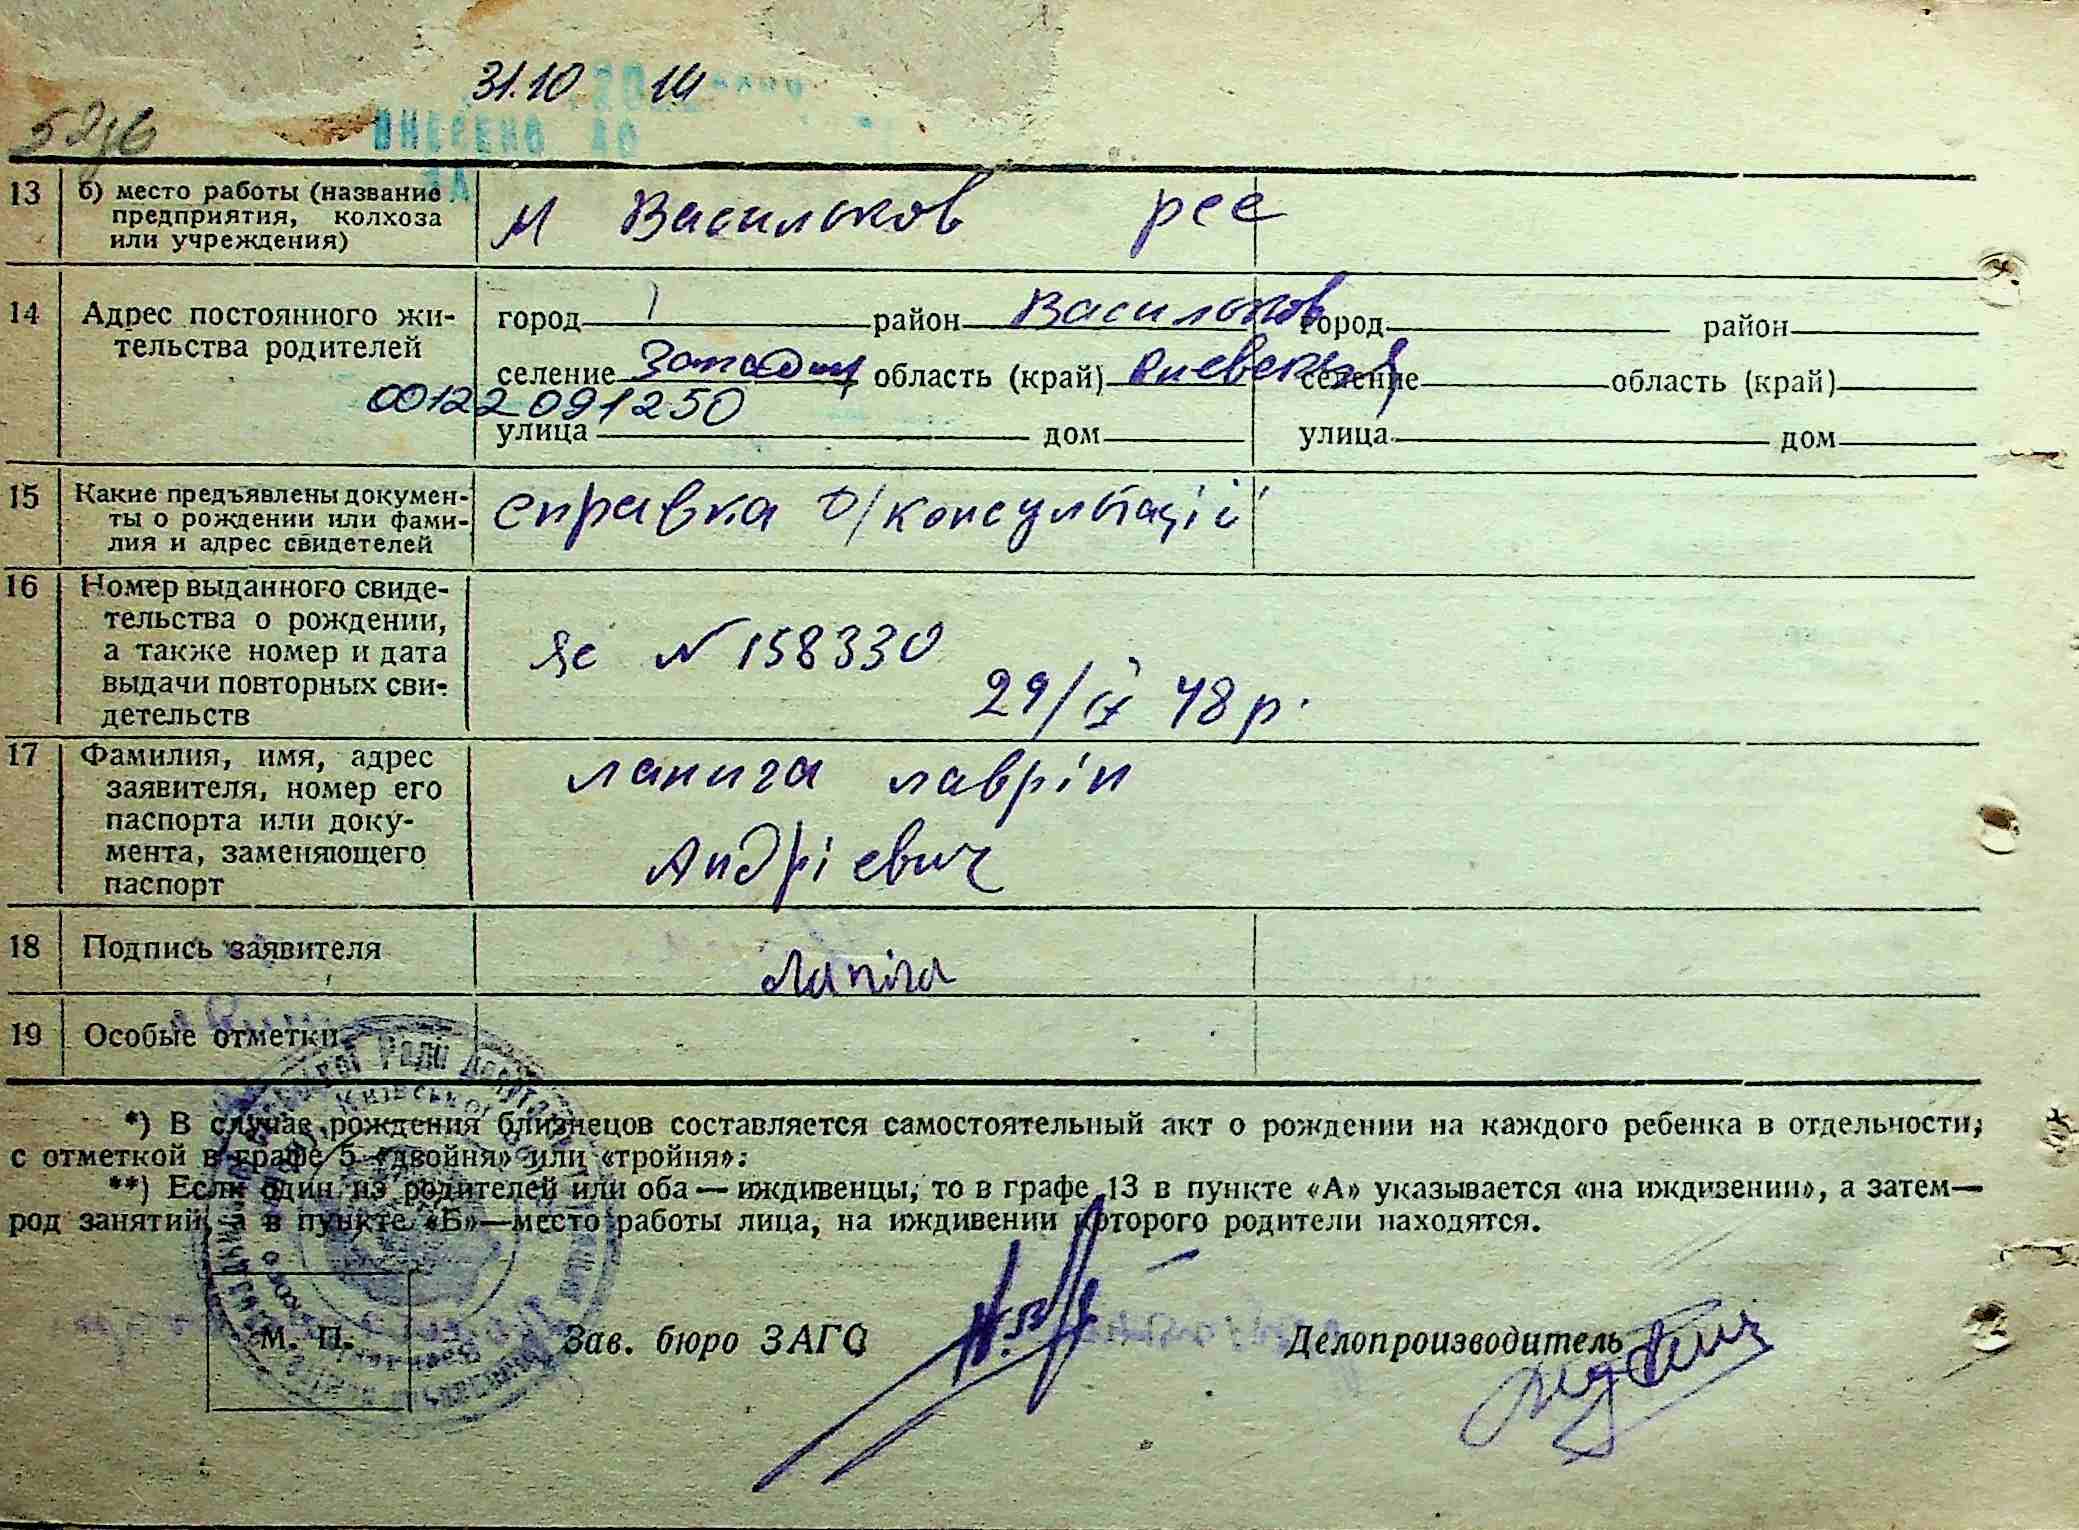 31.10 14
ВНЕСЕНО ДО
13 б) место работы (название предприятия, колхоза или учреждения) м Васильков рее
14 Адрес постоянного жи-
тельства родителей
город район Васильков город район
селение область (край) Киевская селение область (край)
00122091250
улица дом улица дом
15 Какие предъявлены докумен-
ты о рождении или фами-
лия и адрес свидетелей
справка ж/консультації
16 Номер выданного свиде-
тельства о рождении,
а также номер и дата
выдачи повторных сви-
детельств
N 158330
29/IX 48 р.
17 Фамилия, имя, адрес
заявителя, номер его
паспорта или доку-
мента, заменяющего
паспорт
Лапига Лаврін
Андрієвич
18 Подпись заявителя
19 Особые отметки
*) В случае рождения близнецов составляется самостоятельный акт о рождении на каждого ребенка в отдельности,
с отметкой в графе 5 «двойня» или «тройня».
**) Если один из родителей или оба — иждивенцы, то в графе 13 в пункте «А» указывается «на иждивении», а затем—
род занятий, а в пункте «Б»—место работы лица, на иждивении которого родители находятся.
М. П. Зав. бюро ЗАГС Делопроизводитель